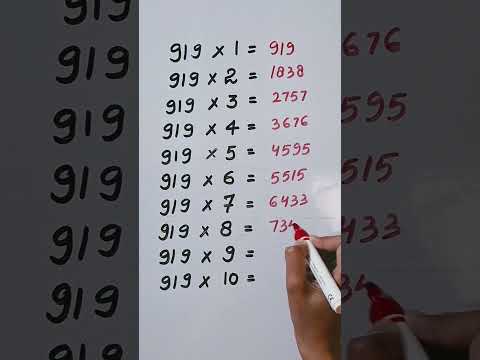 919 x 1 = 919
919 x 2 = 1838
919 x 3 = 2757
919 x 4 = 3676
919 x 5 = 4595
919 x 6 = 5515
919 x 7 = 6433
919 x 8 = 734
919 x 9 =
919 x 10 =